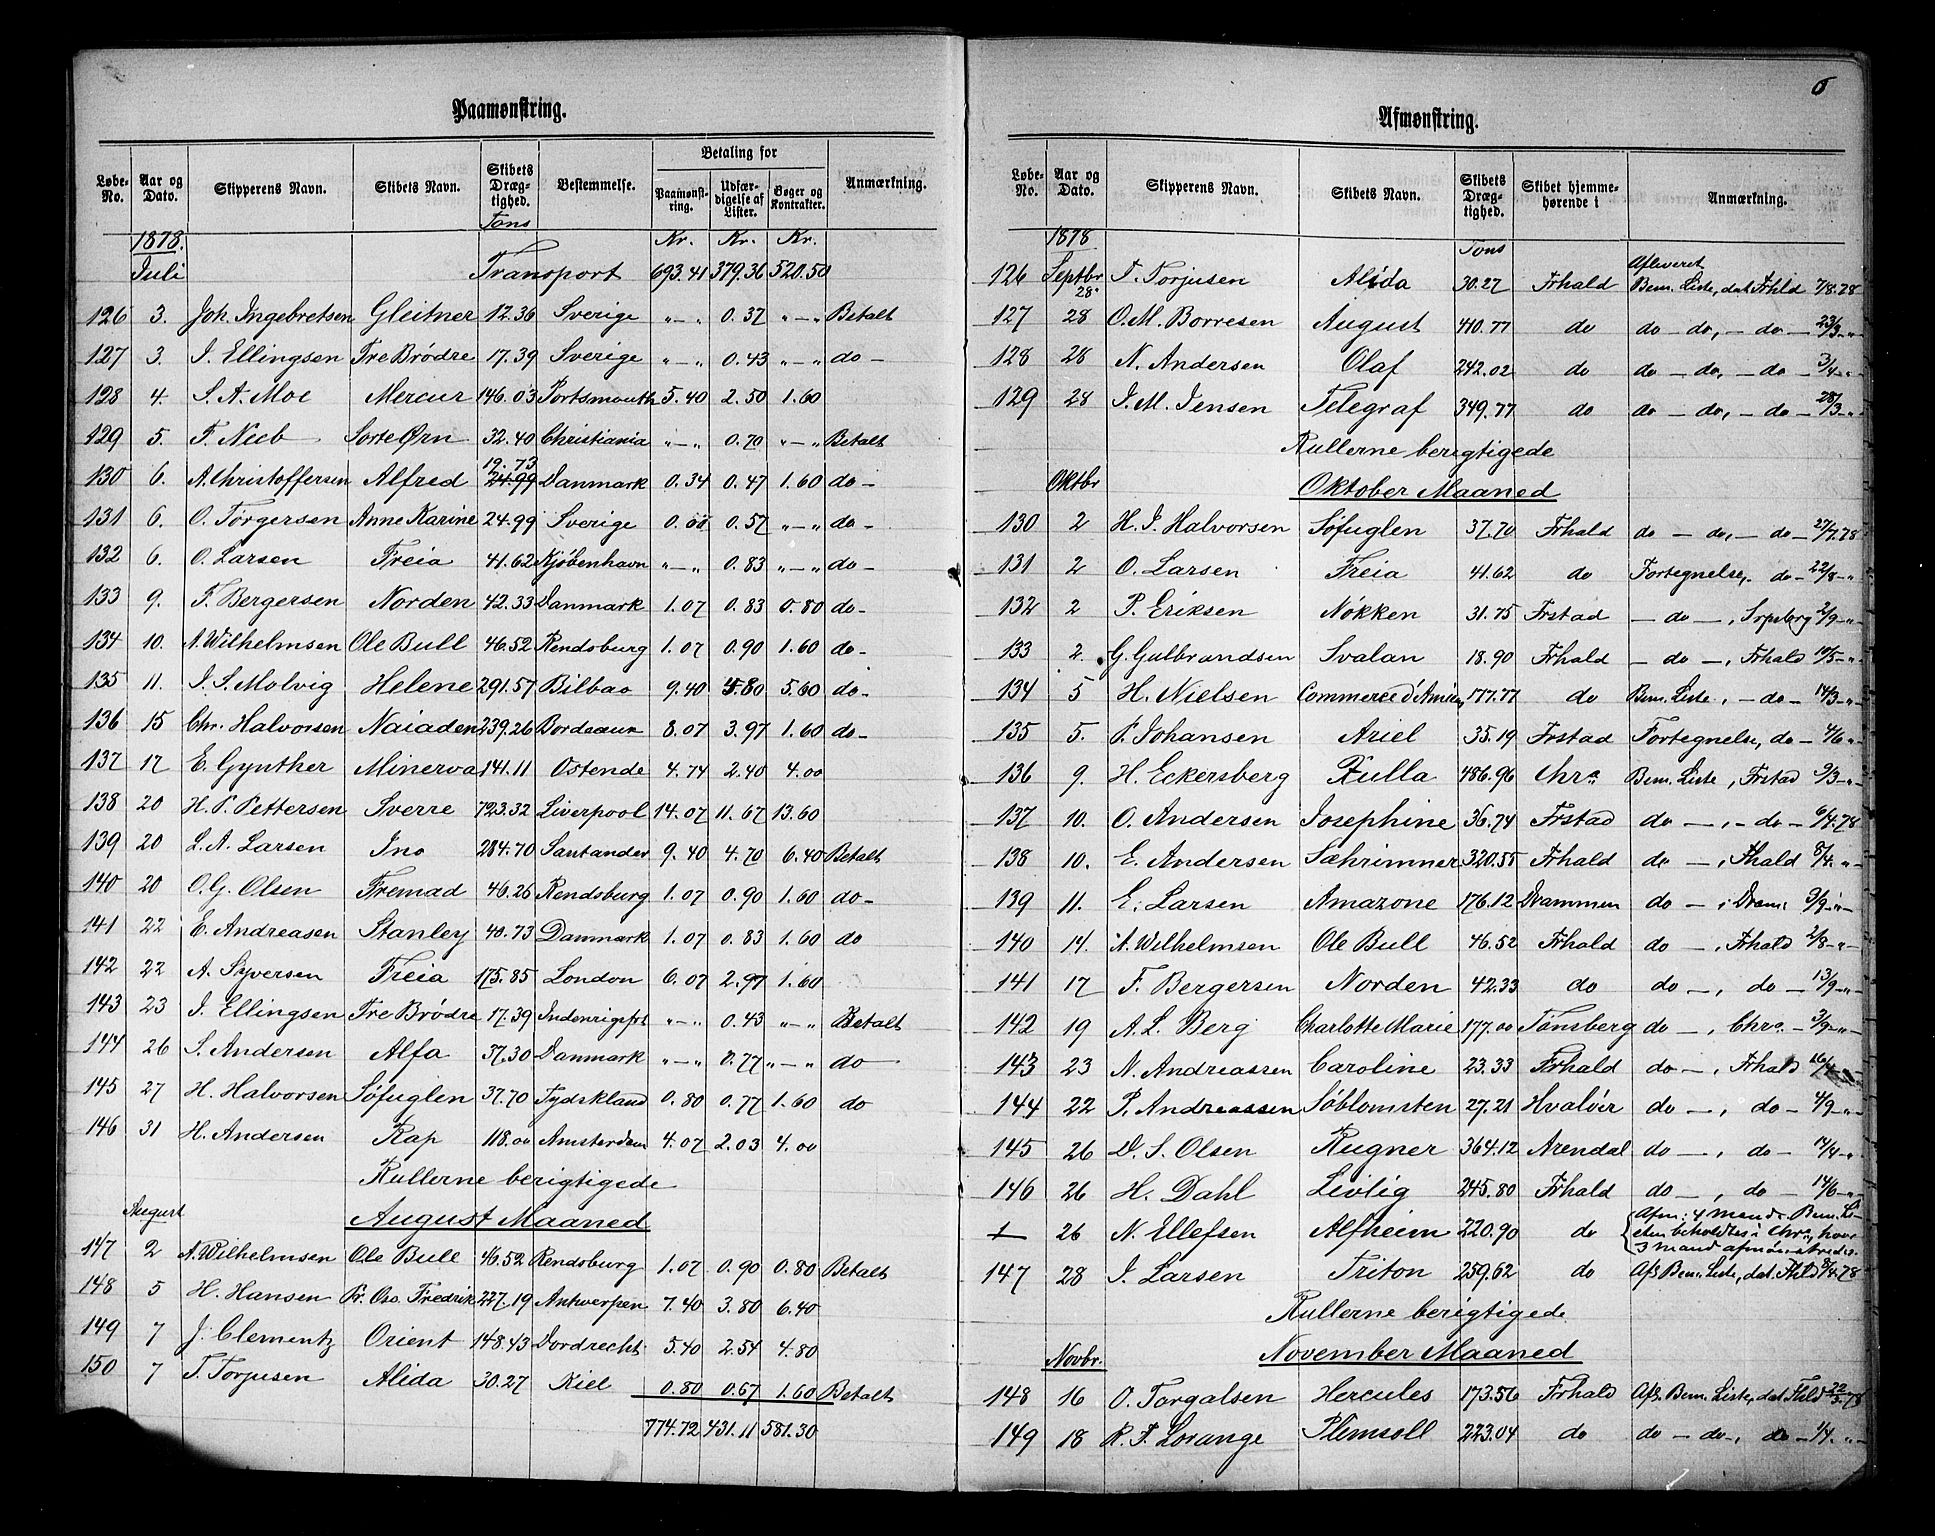 Paamønstring.
Løbe-No. Aar og Dato. Skipperens Navn. Skibets Navn. Skibets Dræg-tighed. Bestemmelse. Betaling for Paamønst-ring. Udfær-digelse af Lister. Bøger og Kontrakter. Anmærkning.
Tons
1878. Kr. Kr. Kr.
Juli Transport 693.41 379.36 520.50
126 3. Joh. Ingebretsen Gleitner 12.36 Sverige "—" 0.37 "—" Betalt
127 3. J. Ellingsen Tre Brödre 17.39 Sverige "—" 0.43 "—" do —
128 4. S. A. Moe Mercur 146.03 Portsmouth 5.40 2.50 1.60
129 5. F. Neeb Sorte Ørn 32.40 Christiania "—" 0.70 "—" Betalt
19.73
130 6. A. Christoffersen Alfred 24.99 Danmark 0.34 0.47 1.60 do —
131 6. O. Torgersen Anne Karine 24.99 Sverige 0.00 0.57 "—" do —
132 6. O. Larsen Freia 41.62 Kjöbenhavn "—" 0.83 "—" do —
133 9. F. Bergersen Norden 42.33 Danmark 1.07 0.83 0.80 do —
134 10. A. Wilhelmsen Ole Bull 46.52 Rendsburg 1.07 0.90 1.60 do —
135 11. J. S. Molvig Helene 291.57 Bilbao 9.40 4.80 5.60 do —
136 15 Chr. Halvorsen Naiaden 239.26 Bordeaux 8.07 3.97 1.60 do —
137 17 E. Gynther Minerva 141.11 Ostende 4.74 2.40 4.00
138 20 H. P. Pettersen Sverre 723.32 Liverpool 14.07 11.67 13.60
139 20 L. A. Larsen Ino 284.70 Santander 9.40 4.70 6.40 Betalt
140 20 O. G. Olsen Fremad 46.26 Rendsburg 1.07 0.90 1.60 do —
141 22 E. Andreasen Stanley 40.73 Danmark 1.07 0.83 1.60 do
142 22 A. Syversen Freia 175.85 London 6.07 2.97 1.60
143 23 J. Ellingsen Tre Brödre 17.39 Indenrigsfrt "—" 0.43 "—" Betalt
144 26 S. Andersen Alfa 37.30 Danmark "—" 0.77 "—" do
145 27 H. Halvorsen Söfuglen 37.70 Tydskland 0.80 0.77 1.60 do
146 31 H. Andersen Rap 118.00 Amsterdam 4.07 2.03 4.00
Rullerne berigtigede
August August Maaned
147 2 A. Wilhelmsen Ole Bull 46.52 Rendsburg 1.07 0.90 0.80 Betalt
148 5 H. Hansen Pr. Osc. Fredrik 227.19 Antwerpen 7.40 3.80 6.40
149 7 J. Clementz Orient 148.43 Dordrecht 5.40 2.54 4.80
150 7 T. Torjusen Alida 30.27 Kiel 0.80 0.67 1.60 Betalt
774.72 431.11 581.30
6
Afmønstring.
Løbe-No. Aar og Dato. Skipperens Navn. Skibets Navn. Skibets Dræg-tighed. Skibet hjemme-hørende i Anmærkning.
1878 Tons Afleveret
126 Septbr 28. T. Torjusen Alida 30.27 Frhald Bem. Liste, dat Frhld 7/8.78
127 28 O. M. Borresen August 410.77 do do — do, — do — 23/3 — "
128 28 N. Andersen Olaf 242.02 do do — do, — do — 3/4 — "
129 28 J. M. Jensen Telegraf 349.77 do do — do, — do — 28/3 — "
Rullerne berigtigede
Oktbr Oktober Maaned
130 2 H. J. Halvorsen Söfuglen 37.70 Frhald do — do, — do — 27/7.78
131 2 O. Larsen Freia 41.62 do Fortegnelse, do — 22/8 — "
132 2 P. Eriksen Nökken 31.75 Frstad — do —, Srpsborg 2/9 — "
133 2. G. Gulbrandsen Svalan 18.90 Frhald — do —, Frhald 10/5 — "
134 5 H. Nielsen Commerce d'Amiens 177.77 do Bem. Liste, — do — 14/3 — "
135 5. P. Johansen Ariel 35.19 Frstad Fortegnelse, do — 4/6 "
136 9. H. Eckersberg Rulla 486.96 Chra. Bem. Liste, Frstad 9/3 — "
137 10. O. Andersen Josephine 36.74 Frstad do —, — do — 6/4.78
138 10. E. Andersen Sæhrimner 320.55 Frhald do —, Fhald 8/4. "
139 11. E. Larsen Amazone 176.12 Drammen do —, Dram. 9/9 — "
140 14. A. Wilhelmsen Ole Bull 46.52 Frhald do —, Frhald 2/8 — "
141 17 F. Bergersen Norden 42.33 do do —, do — 13/9 — "
142 19 A. L. Berg Charlotte Marie 177.00 Tønsberg do —, Chra. — 3/9 — "
143 23 N. Andreassen Caroline 23.33 Frhald do —, Frhald 16/4
144 22 P. Andreassen Söblomsten 27.21 Hvalöer do —, do — 4/9 — "
145 26 D. S. Olsen Rugner 364.12 Arendal do —, do — 14/4 "
146 26 H. Dahl Livlig 245.80 Frhald do —, do — 14/6 — "
1 26 N. Ellefsen Alfheim 220.90 do Afm: 4 mand. Bem. Li-
sten beholdtes i Chra, hvor
3 mand afmönstredes.
147 28 J. Larsen Triton 259.62 do Afl. Bem. Liste, dat. Fhld 9/4.78
Rullerne berigtigede
Novbr. November Maaned
148 16 O. Torgalsen Hercules 173.56 Frhald Afl. Bem. Liste, dat. Fhld 22/3.78
149 18 R. F. Lorange Plemsoll 223.04 do do — do —, do — 1/4. " —